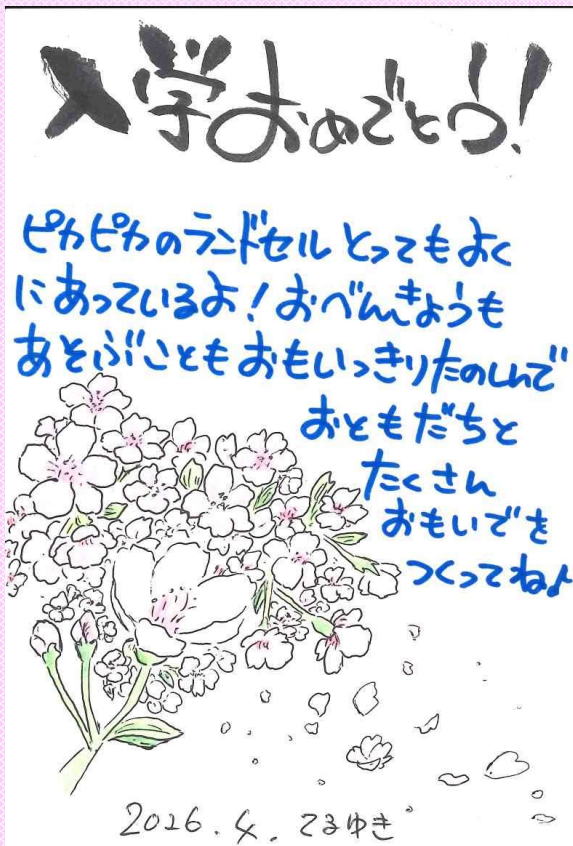 入学おめでとう!
ピカピカのランドセル とってもよく
にあっているよ!おべんきょうも
あそぶこともおもいっきりたのしんで
おともだちと
たくさん
おもいでを
つくってね♪
2026.4.てるゆき